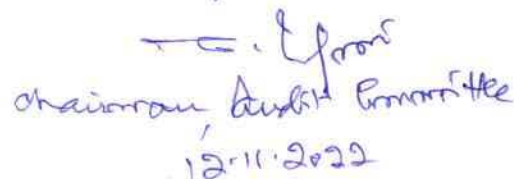 Chairman, Audit Committee
12.11.2022